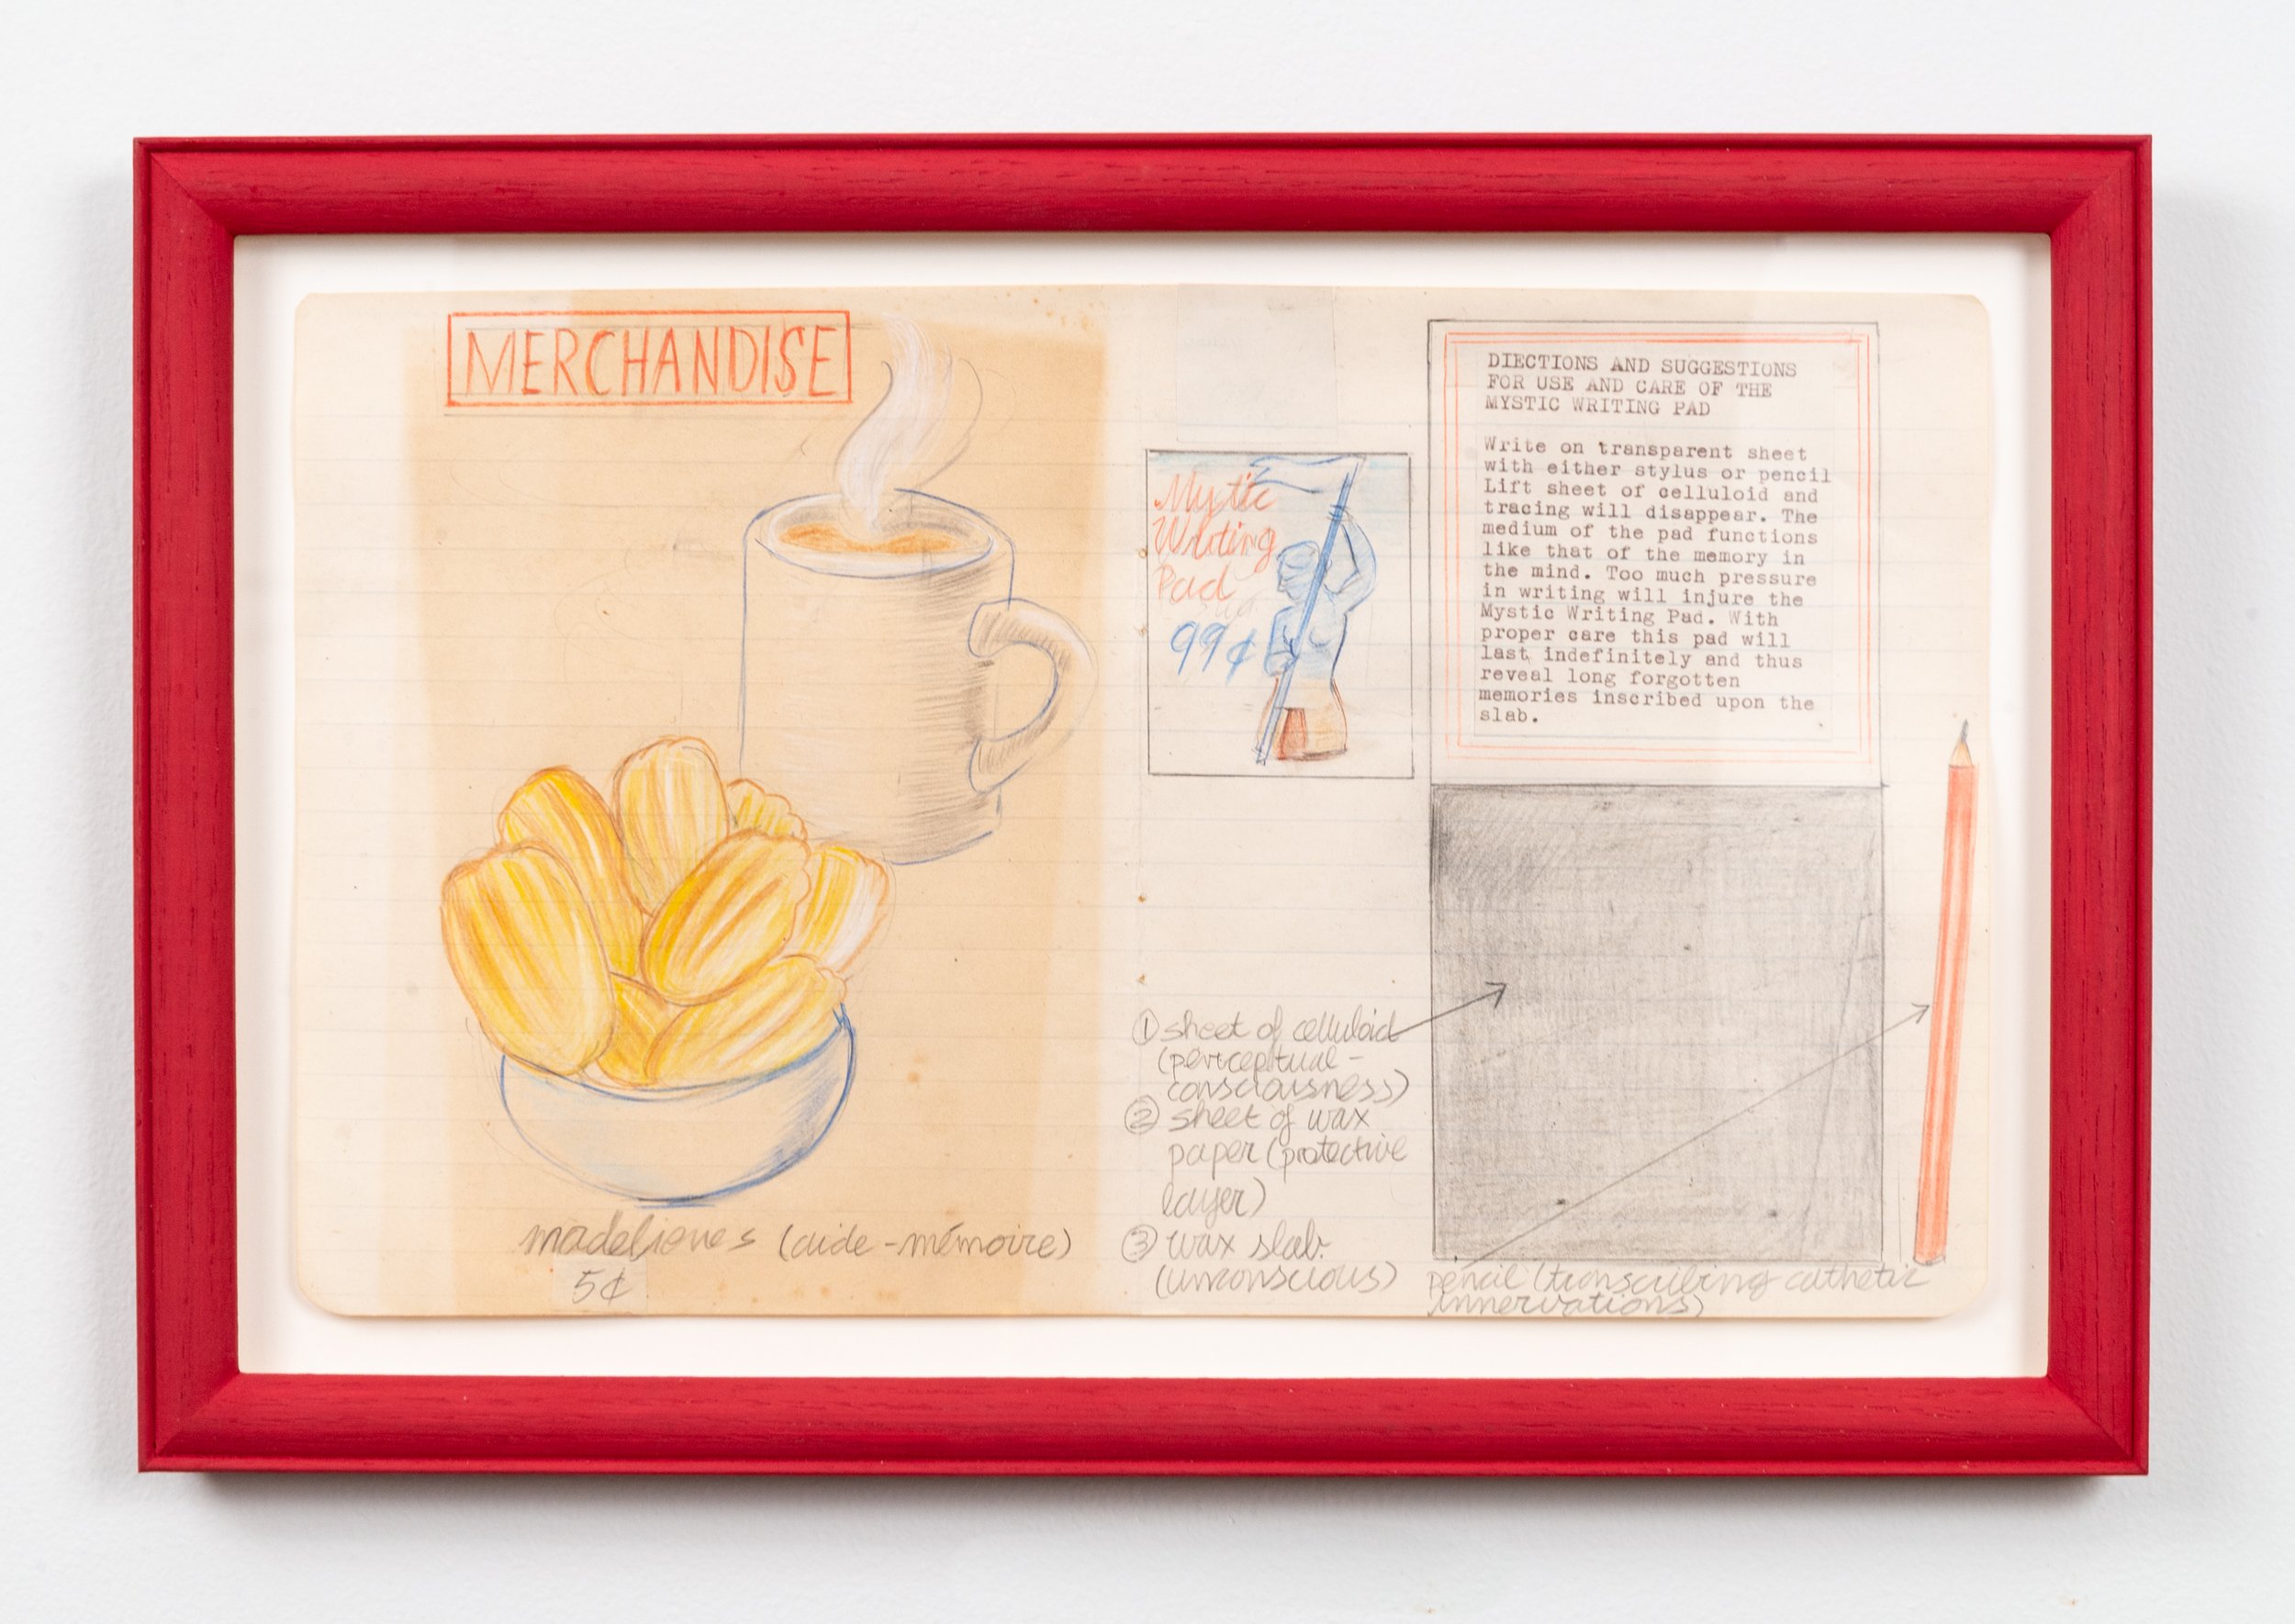 MERCHANDISE
madelienes (aide-mémoire)
5¢
Mystic
Writing
Pad
99¢
DIECTIONS AND SUGGESTIONS
FOR USE AND CARE OF THE
MYSTIC WRITING PAD
Write on transparent sheet
with either stylus or pencil
Lift sheet of celluloid and
tracing will disappear. The
medium of the pad functions
like that of the memory in
the mind. Too much pressure
in writing will injure the
Mystic Writing Pad. With
proper care this pad will
last indefinitely and thus
reveal long forgotten
memories inscribed upon the
slab.
① sheet of celluloid
(perceptual-
consciousness)
② sheet of wax
paper (protective
layer)
③ wax slab.
(unconscious)
pencil (transcribing cathetic
innervations)